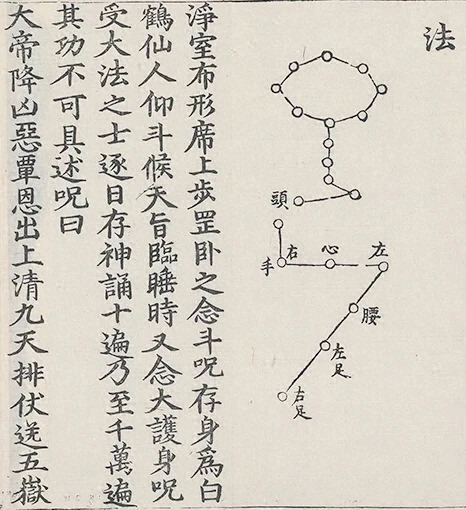 法
頭
手
右
心
左
腰
左足
右足
淨室布形席上步罡卧之念斗呪存身爲白
鶴仙人仰斗候天旨臨睡時又念大護身呪
受大法之士逐日存神誦十遍乃至千萬遍
其功不可具述呪曰
大帝降凶惡覃恩出上清九天排伏送五嶽